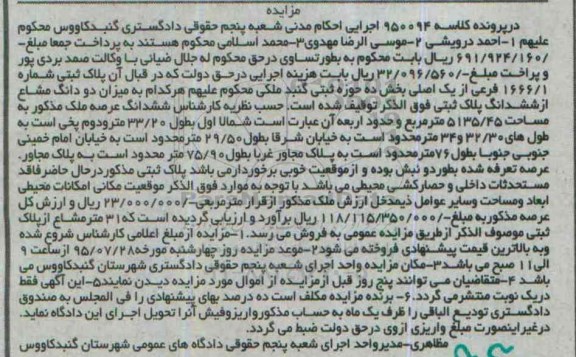 مزایده
درپرونده کلاسه ۹۵۰۰۹۴ اجرایی احکام مدنی شعبه پنجم حقوقی دادگستری گنبدکاووس محکوم
علیهم ۱-احمد درویشی ۲-موسی الرضا مهدوی۳-محمد اسلامی محکوم هستند به پرداخت جمعا مبلغ-
/۶۹۱/۹۲۴/۱۶۰ ریال بابت محکوم به بطورتساوی درحق محکوم له جلال ضیانی با وکالت صمد بردی پور
و پراخت مبلغ-/۳۲/۰۹۶/۵۶۰ ریال بابت هزینه اجرایی درحق دولت که در قبال آن پلاک ثبتی شماره
۱۶۶۶/۱ فرعی از یک اصلی بخش ده حوزه ثبتی گنبد ملکی محکوم علیهم هرکدام به میزان دو دانگ مشاع
ازششدانگ پلاک ثبتی فوق الذکر توقیف شده است. حسب نظریه کارشناس ششدانگ عرصه ملک مذکور به
مساحت ۵۱۳۵/۴۵ مترمربع وحدود اربعه آن عبارت است شمالا اول بطول ۳۳/۲۰ مترودوم پخی است به
طول های ۳۲/۳۰و۳۴ مترمحدود است به خیابان شرقا بطول ۲۹/۵۰ مترمحدود است به خیابان امام خمینی
جنوبی جنوبا بطول ۷۶مترمحدود است به پلاک مجاور غربا بطول ۷۵/۹۰ متر محدود است به پلاک مجاور.
عرصه تعرفه شده بطوردو نبش بوده و ازموقعیت خوبی برخوردارمی باشد پلاک ثبتی مذکوردرحال حاضرفاقد
مستحدثات داخلی و حصارکشی محیطی می باشد با توجه به موارد فوق الذکر موقعیت مکانی امکانات محیطی
ابعاد ومساحت وسایر عوامل ذیمدخل ارزش ملک مذکور ازقرار مترمربعی-/۲۳/۰۰۰/۰۰۰ ریال و ارزش کل
عرصه مذکوربه مبلغ-/۱۱۸/۱۱۵/۳۵۰/۰۰۰ ریال برآورد و ارزیابی گردیده است که۳۱ مترمشاع ازپلاک
ثبتی موصوف الذکر ازطریق مزایده عمومی به فروش می رسد. ۱-مزایده ازمبلغ اعلامی کارشناس شروع شده
وبه بالاترین قیمت پیشنهادی فروخته می شود۲-موعد مزایده روز چهارشنبه مورخه۹۵/۰۷/۲۸ ازساعت ۹
الی۱۱ صبح می باشد۳-مکان مزایده واحد اجرای شعبه پنجم حقوقی دادگستری شهرستان گنبدکاووس می
باشد ۴-متقاضیان می توانند پنج روز قبل ازمزایده از اموال مورد مزایده دیدن نمایند۵-این آگهی فقط
دریک نوبت منتشرمی گردد.۶- برنده مزایده مکلف است ده درصد بهای پیشنهادی را فی المجلس به صندوق
دادگستری تودیع الباقی را ظرف یک ماه به حساب مذکورواریزوفیش آنرا تحویل اجرای این دادگاه نماید.
درغیراینصورت مبلغ واریزی ازوی درحق دولت ضبط می گردد.
مظاهری-مدیرواحد اجرای شعبه پنجم حقوقی دادگاه های عمومی شهرستان گنبدکاووس